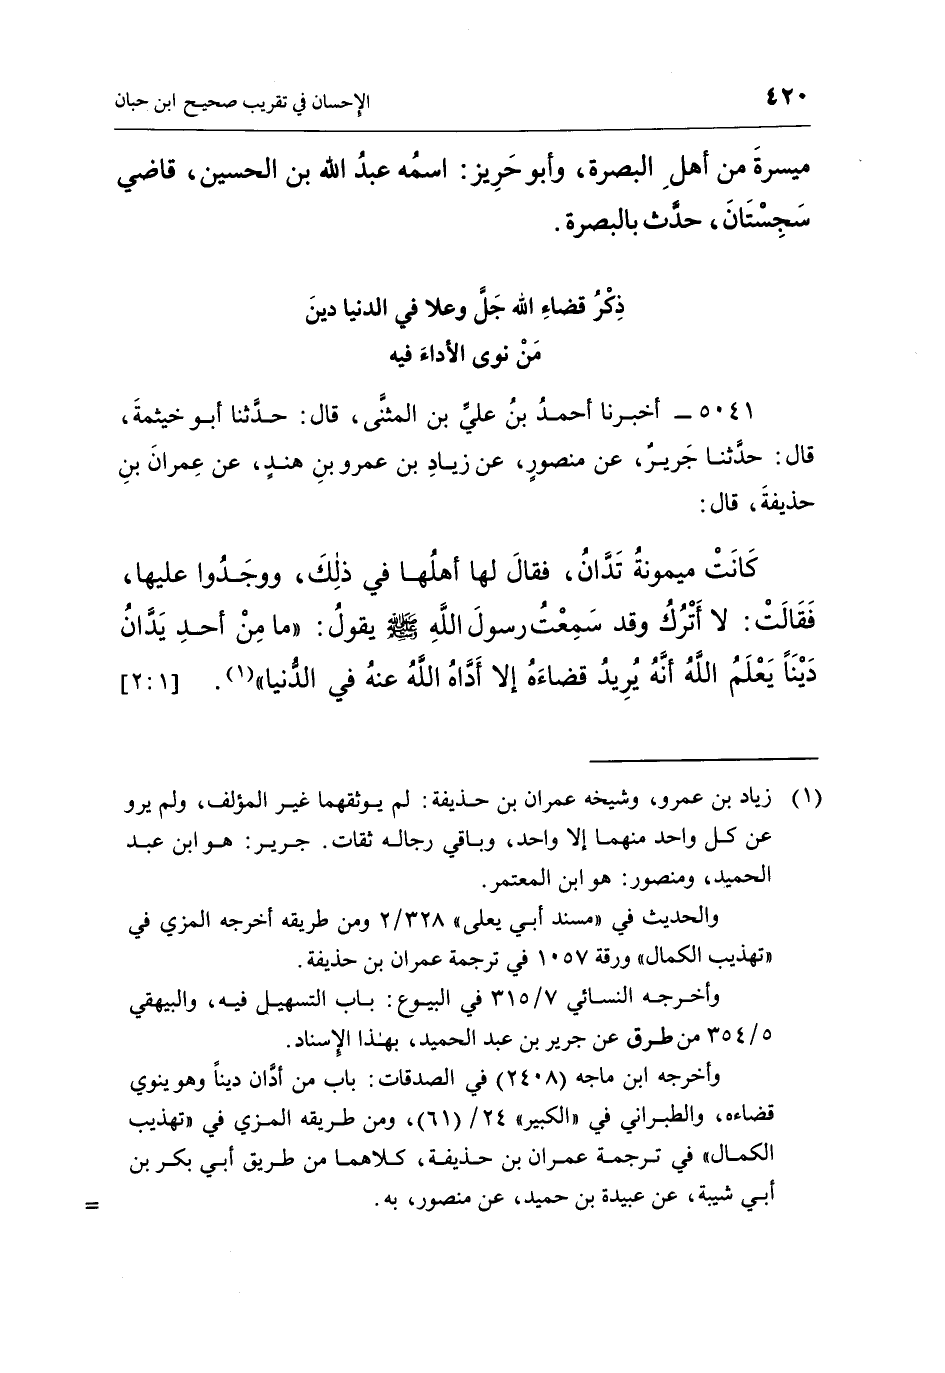 ٤٢٠ الإحسان في تقريب صحيح ابن حبان
ميسرةَ من أهلِ البصرة، وأبو حَرِيز: اسمُه عبدُ الله بن الحسين، قاضي
سَجِسْتَانَ، حدَّث بالبصرة.
ذِكْرُ قضاءِ الله جَلَّ وعلا في الدنيا دينَ
مَنْ نوى الأداءَ فيه
٥٠٤١ ـ أخبرنا أحمدُ بنُ عليِّ بن المثنَّى، قال: حدَّثنا أبو خيثمةَ،
قال: حدَّثنا جَريرٌ، عن منصورٍ، عن زيادِ بن عمرو بنِ هندٍ، عن عِمرانَ بنِ
حذيفةَ، قال:
كَانَتْ ميمونةُ تَدَّانُ، فقالَ لها أهلُها في ذلِكَ، ووجَدُوا عليها،
فَقَالَتْ: لا أَتْرُكُ وقد سَمِعْتُ رسولَ اللَّهِ ﷺ يقولُ: «ما مِنْ أحدٍ يَدَّانُ
دَيْنَاً يَعْلَمُ اللَّهُ أنَّهُ يُرِيدُ قضاءَهُ إلا أَدَّاهُ اللَّهُ عنهُ في الدُّنيا»(١). [٢:١]
(١) زياد بن عمرو، وشيخه عمران بن حذيفة: لم يوثقهما غير المؤلف، ولم يرو
عن كل واحد منهما إلا واحد، وباقي رجاله ثقات. جرير: هو ابن عبد
الحميد، ومنصور: هو ابن المعتمر.
والحديث في «مسند أبي يعلى» ٢/٣٢٨ ومن طريقه أخرجه المزي في
«تهذيب الكمال» ورقة ١٠٥٧ في ترجمة عمران بن حذيفة.
وأخرجه النسائي ٣١٥/٧ في البيوع: باب التسهيل فيه، والبيهقي
٣٥٤/٥ من طرق عن جرير بن عبد الحميد، بهذا الإسناد.
وأخرجه ابن ماجه (٢٤٠٨) في الصدقات: باب من أدَّان ديناً وهو ينوي
قضاءه، والطبراني في «الكبير» ٢٤/ (٦١)، ومن طريقه المزي في «تهذيب
الكمال» في ترجمة عمران بن حذيفة، كلاهما من طريق أبي بكر بن
أبي شيبة، عن عبيدة بن حميد، عن منصور، به. =